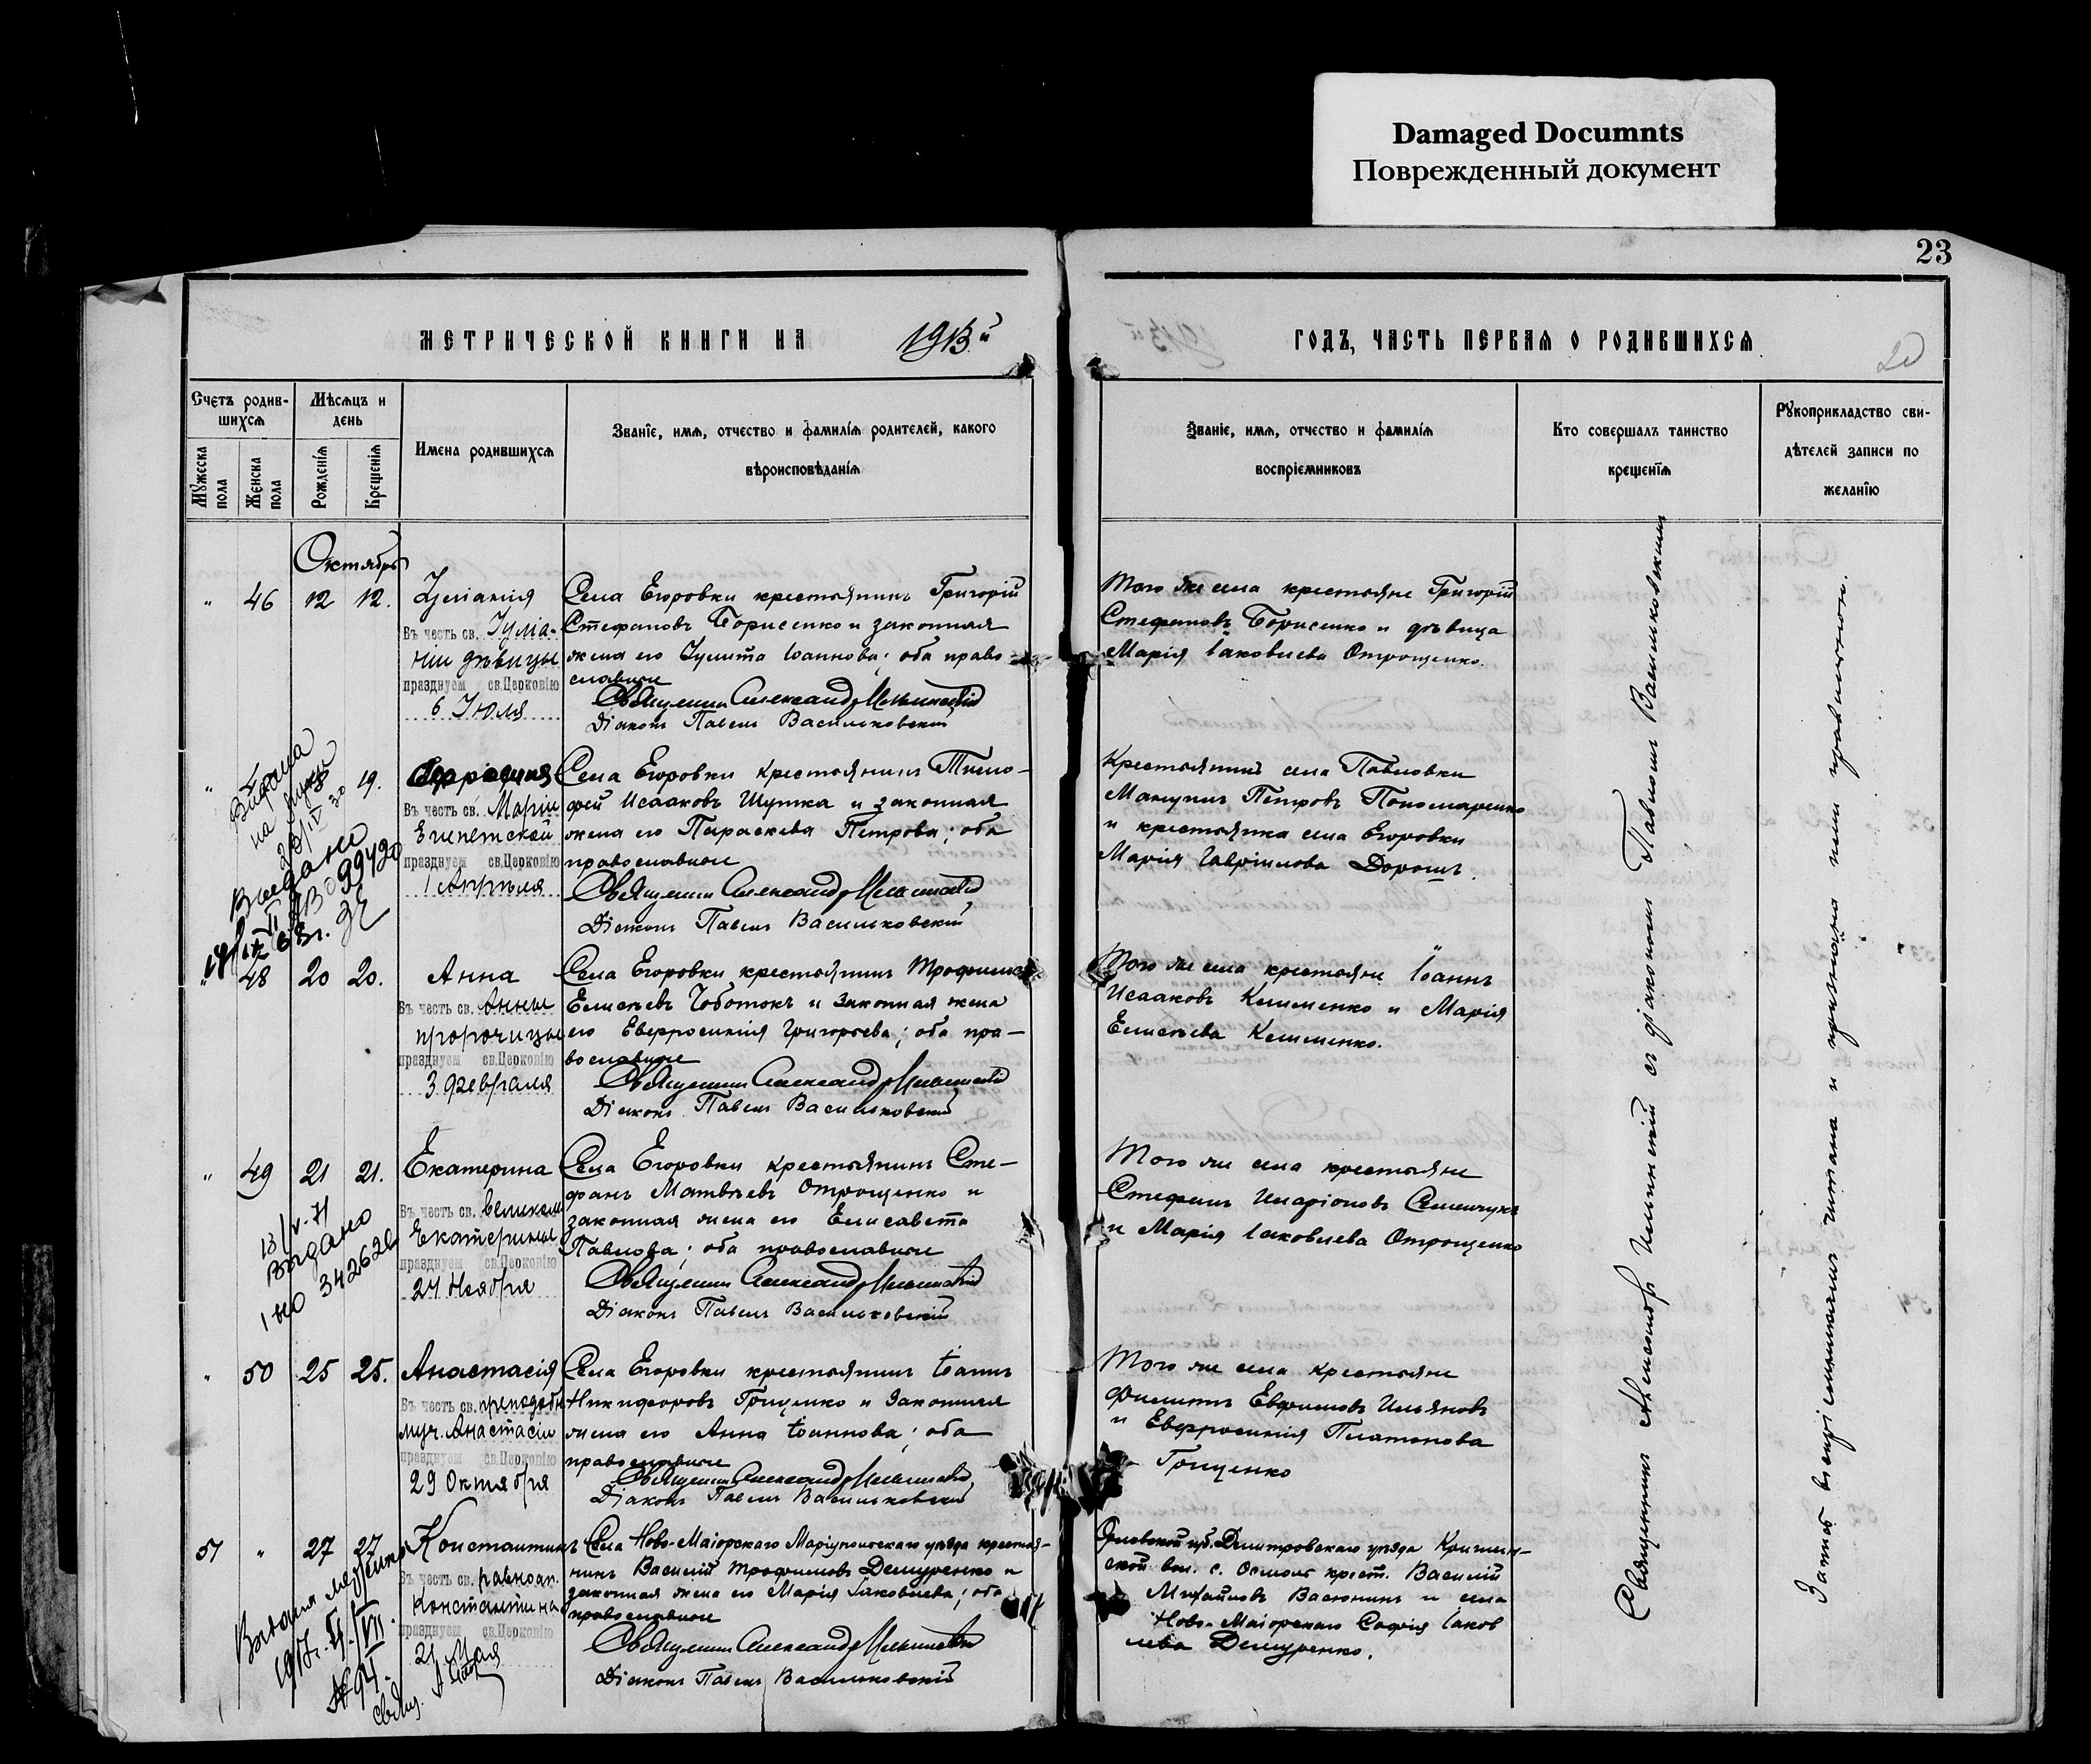 Damaged Documnts
Поврежденный документ
23
МЕТРИЧЕСКОЙ КНИГИ НА 1913й
ГОДЪ, ЧАСТЬ ПЕРВАЯ О РОДИВШИХСЯ
Счетъ родив-
шихся
Мѣсяцъ и
день
Мужеска
пола
Женска
пола
Рожденія
Крещенія
Имена родившихся
Званіе, имя, отчество и фамилія родителей, какого
вѣроисповѣданія
Званіе, имя, отчество и фамилія
воспріемниковъ
Кто совершалъ таинство
крещенія
Рукоприкладство сви-
дѣтелей записи по
желанію
Октябрь
" 46 12 12. Іуліанія
Въ честь св. Іуліа-
ніи дѣвицы
празднуем св.Церковію
6 Іюля
Села Егоровки крестьянинъ Григорій
Стефановъ Борисенко и законная
жена его Іулита Іоаннова; оба право-
славные
Священникъ Александръ
Діаконъ Павелъ Васильковскій
Того же села крестьяне Григорій
Стефановъ Борисенко и дѣвица
Марія Іаковлева Отрощенко.
" 19.
Въ честь св. Маріи
Египетской
празднуем св.Церковію
1 Апрѣля
Села Егоровки крестьянинъ Тимо-
фей Исааковъ Шутка и законная
жена его Параскева Петрова; оба
православные
Священникъ Александръ
Діаконъ Павелъ Васильковскій
Крестьянинъ села Павловки
Петровъ Пономаренко
и крестьянка села Егоровки
Марія Гавріилова Дорошъ.
" 48 20 20. Анна
Въ честь св. Анны
пророчицы
празднуем св.Церковію
3 февраля
Села Егоровки крестьянинъ Трофимъ
Елисѣевъ Чоботокъ и законная жена
его Евфросинія Григорьева; оба пра-
вославные
Священникъ Александръ
Діаконъ Павелъ Васильковскій
Того же села крестьяне Іоаннъ
Исааковъ Клименко и Марія
Елисѣева Клименко.
" 49 21 21. Екатерина
Въ честь св. великом.
Екатерины
празднуем св.Церковію
24 Ноября
13/V-71
Выдано
342620
Села Егоровки крестьянинъ Сте-
фанъ Матвѣевъ Отрощенко и
законная жена его Елисавета
Павлова; оба православные
Священникъ Александръ
Діаконъ Павелъ Васильковскій
Того же села крестьяне
Стефанъ Иларіоновъ Семенчукъ
и Марія Іаковлева Отрощенко
" 50 25 25. Анастасія
Въ честь св. преподобн.
муч. Анастасіи
празднуем св.Церковію
29 Октября
Села Егоровки крестьянинъ Іоаннъ
Никифоровъ Грищенко и законная
жена его Анна Іоаннова; оба
православные
Священникъ Александръ
Діаконъ Павелъ Васильковскій
Того же села крестьяне
Филиппъ Евфимовъ Ильяновъ
и Евфросинія Платонова
Грищенко
51 " 27 27 Константинъ
Въ честь св. равноап.
Константина
празднуем св.Церковію
21 Мая
Села Ново-Маіорскаго Маріупольскаго уѣзда крестья-
нинъ Василій Трофимовъ Демуренко и
законная жена его Марія Іаковлева; оба
православные
Священникъ Александръ
Діаконъ Павелъ Васильковскій
Орловской губ. Дмитровскаго уѣзда
вол. с. крест. Василій
Михайловъ Васюнинъ и села
Ново-Маіорскаго Софія Іаков
лева Демуренко.
Священникъ съ діакономъ Павломъ Васильковскимъ
Запись воспріемникамъ читана и признана ими правильною.